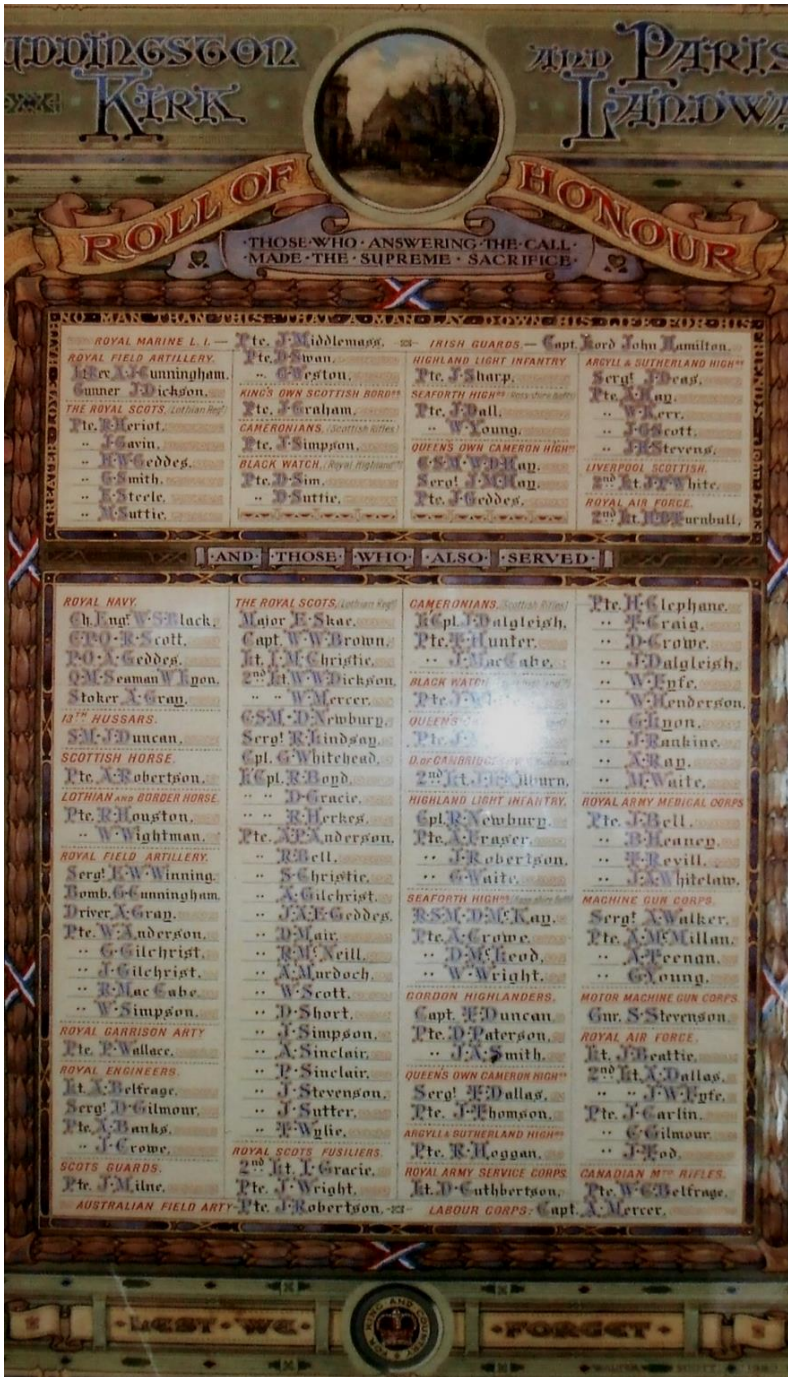 UDDINGSTON
KIRK
AND PARIS
LANDWA
ROLL OF HONOUR
·THOSE·WHO·ANSWERING·THE·CALL·
·MADE·THE·SUPREME·SACRIFICE·
NO MAN THAN THIS THAT A MAN LAY DOWN HIS LIFE FOR HIS
ROYAL MARINE L.I.— Pte. J·Middlemass. IRISH GUARDS.— Capt. Lord John Hamilton.
ROYAL FIELD ARTILLERY.
Lt Rev. A·J·Cunningham.
Gunner J·Dickson.
THE ROYAL SCOTS. (Lothian Regt)
Pte. R·Heriot.
·· J·Gavin.
·· H·W·Geddes.
·· G·Smith.
·· E·Steele.
·· M·Suttie.
Pte. D·Swan.
·· G·Weston.
KING'S OWN SCOTTISH BORDRS
Pte. J·Graham.
CAMERONIANS. (Scottish Rifles)
Pte. J·Simpson.
BLACK WATCH. (Royal Highland
Pte. D·Sim.
·· D·Suttie.
HIGHLAND LIGHT INFANTRY
Pte. J·Sharp.
SEAFORTH HIGHRS
Pte. J·Dall.
·· W·Young.
QUEEN'S OWN CAMERON HIGHRS
C·S·M·W·D·Hay.
Sergt J·M·Hay.
Pte. J·Geddes.
ARGYLL & SUTHERLAND HIGHRS
Sergt J·Deas.
Pte. A·Hay.
·· W·Kerr.
·· J·G·Scott.
·· J·H·Stevens.
LIVERPOOL SCOTTISH.
2nd Lt. J·P·White.
ROYAL AIR FORCE.
2nd Lt. Turnbull.
·AND·THOSE·WHO·ALSO·SERVED·
ROYAL NAVY.
Ch. Engr W·S·Black.
C·P·O·R·Scott.
P·O·A·Geddes.
Q·M·Seaman W·Lyon.
Stoker A·Gray.
13TH HUSSARS.
S·M·J·Duncan.
SCOTTISH HORSE.
Pte. A·Robertson.
LOTHIAN AND BORDER HORSE.
Pte. R·Houston.
·· W·Wightman.
ROYAL FIELD ARTILLERY.
Sergt E·W·Winning.
Bomb. G·Cunningham.
Driver A·Gray.
Pte. W·Anderson.
·· G·Gilchrist.
·· J·Gilchrist.
·· R·MacCabe.
·· W·Simpson.
ROYAL GARRISON ARTY
Pte. P·Wallace.
ROYAL ENGINEERS.
Lt. A·Belfrage.
Sergt D·Gilmour.
Pte. A·Banks.
·· J·Crowe.
SCOTS GUARDS.
Pte. J·Milne.
THE ROYAL SCOTS. (Lothian Regt)
Major E·Skae.
Capt. W·W·Brown.
Lt. I·M·Christie.
2nd Lt. W·W·Dickson.
·· ·· W·Mercer.
C·S·M·D·Newbury.
Sergt R·Lindsay.
Cpl. G·Whitehead.
L·Cpl. R·Boyd.
·· ·· D·Gracie.
·· ·· R·Herkes.
Pte. A·P·Anderson.
·· R·Bell.
·· S·Christie.
·· A·Gilchrist.
·· J·A·E·Geddes.
·· D·Mair.
·· R·McNeill.
·· A·Murdoch.
·· W·Scott.
·· D·Short.
·· J·Simpson.
·· A·Sinclair.
·· P·Sinclair.
·· J·Stevenson.
·· J·Sutter.
·· T·Wylie.
ROYAL SCOTS FUSILIERS.
2nd Lt. L·Gracie.
Pte. J·Wright.
CAMERONIANS. (Scottish Rifles)
L·Cpl. J·Dalgleish.
Pte. T·Hunter.
·· J·MacCabe.
BLACK WATCH
Pte. J·
QUEEN'S
Pte. J·
D. OF CAMBRIDGE'S
2nd Lt. Kilburn.
HIGHLAND LIGHT INFANTRY.
Cpl. R·Newbury.
Pte. A·Fraser.
·· J·Robertson.
·· G·Waite.
SEAFORTH HIGHRS
R·S·M·D·McKay.
Pte. A·Crowe.
·· D·McLeod.
·· W·Wright.
GORDON HIGHLANDERS.
Capt. T·Duncan.
Pte. D·Paterson.
·· J·A·Smith.
QUEEN'S OWN CAMERON HIGHRS
Sergt T·Dallas.
Pte. J·Thomson.
ARGYLL & SUTHERLAND HIGHRS
Pte. R·Hoggan.
ROYAL ARMY SERVICE CORPS
Lt. D·Cuthbertson.
Pte. H·Clephane.
·· T·Craig.
·· D·Crowe.
·· J·Dalgleish.
·· W·Fyfe.
·· W·Henderson.
·· G·Lyon.
·· J·Rankine.
·· A·Ray.
·· M·Waite.
ROYAL ARMY MEDICAL CORPS
Pte. J·Bell.
·· B·Heaney.
·· T·Revill.
·· J·A·Whitelaw.
MACHINE GUN CORPS.
Sergt A·Walker.
Pte. A·McMillan.
·· A·Peengn.
·· G·Young.
MOTOR MACHINE GUN CORPS.
Gnr. S·Stevenson.
ROYAL AIR FORCE.
Lt. J·Beattie.
2nd Lt. A·Dallas.
·· ·· J·W·Fyfe.
Pte. J·Carlin.
·· C·Gilmour
·· J·Tod.
CANADIAN MTD RIFLES.
Pte. W·C·Belfrage.
AUSTRALIAN FIELD ARTY— Pte. J·Robertson. LABOUR CORPS: Capt. A·Mercer.
·LEST·WE· ·FORGET·
FOR KING AND COUNTRY